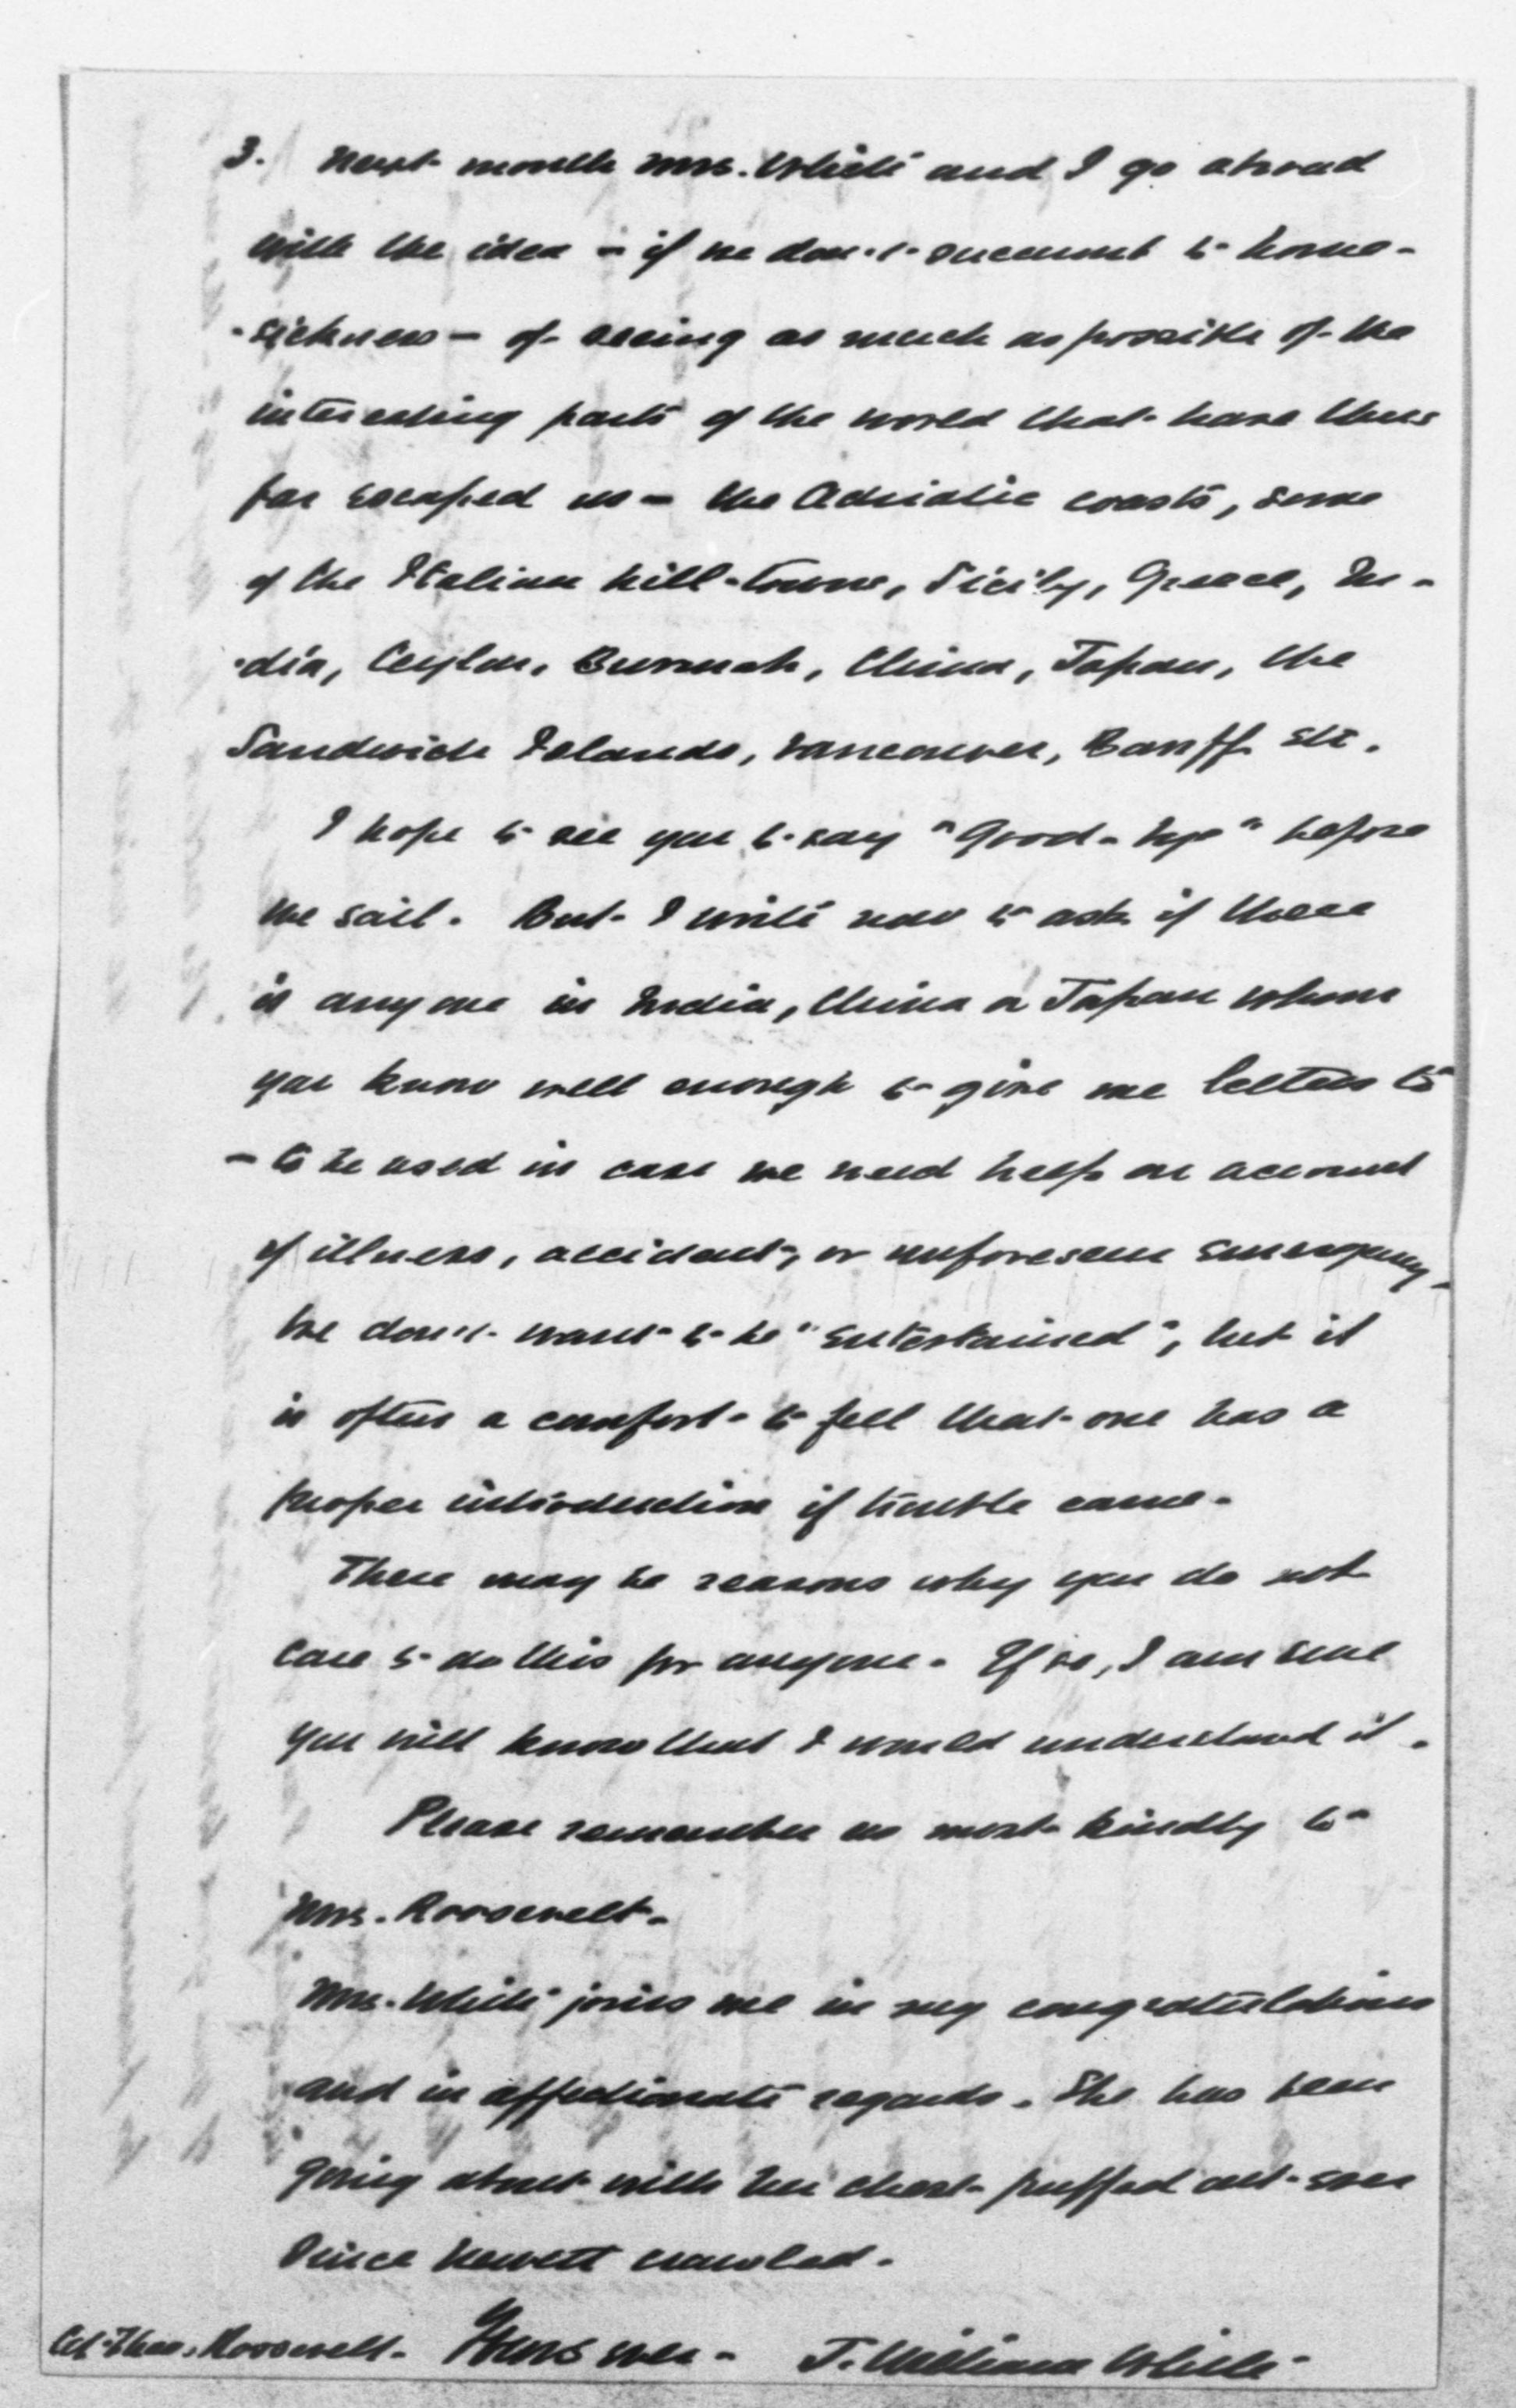 3. Next month Mrs. White and I go abroad
with the idea – if we don't succumb to home-
-sickness – of seeing as much as possible of the
interesting parts of the world that have thus
far escaped us – the Adriatic coasts, some
of the Italian hill-towns, Sicily, Greece, In-
-dia, Ceylon, Burmah, China, Japan, the
Sandwich Islands, Vancouver, Banff etc.
I hope to see you to say "Good-bye" before
we sail. But I write now to ask if there
is anyone in India, China or Japan whom
you know well enough to give me letters to
– to be used in case we need help on account
of illness, accident, or unforeseen emergency.
We don't want to be "entertained", but it
is often a comfort to feel that one has a
proper introduction if trouble came.
There may be reasons why you do not
care to do this for anyone. If so, I am sure
you will know that I would understand it.
Please remember us most kindly to
Mrs. Roosevelt.
Mrs. White joins me in my congratulations
and in affectionate regards. She has been
going about with her chest puffed out ever
since Newett crawled.
Col. Theo. Roosevelt. Yours ever - J. William White